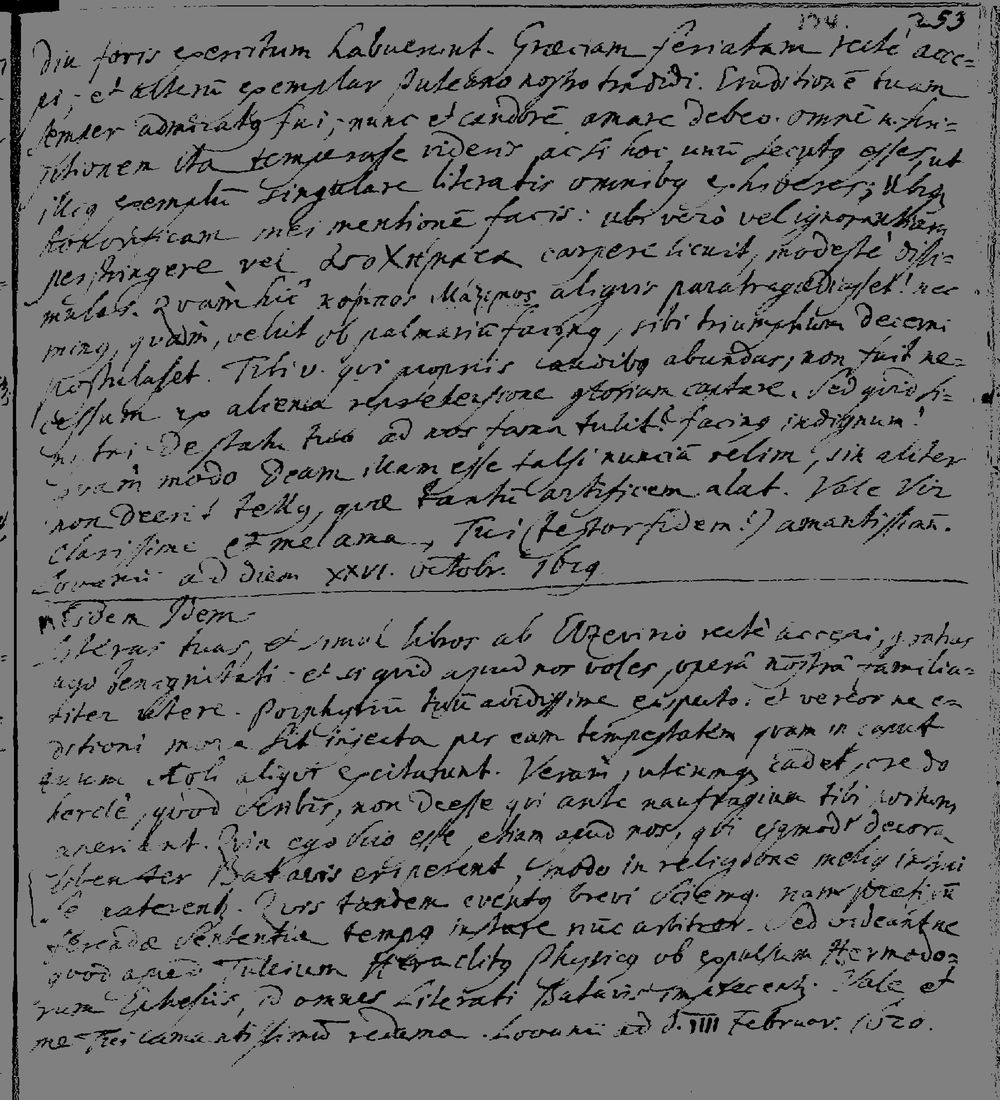 134. 253
diu foris exercitum habuerunt. Græciam feriatam rectè acce=
pi; et alterū exemplar Puteano nostro tradidi. Eruditionē tuam
semper admiratq fui; nunc et candorē amare debeo. omnē n.
ita temperasse videris ac si hoc unū secutq esses, ut
illiq exemplū singulare literatis omnibq exhiberes; Ubiq
honorificam mei mentionē facis: ubi verò vel ignorantiam
perstringere vel carpere licuit, modestè dissi=
mulas. Quàm hîc aliquis paratragœdiasset! nec
minq, quàm, velut ob palmariū facinq, sibi triumphum decerni
postulasset. Tibi v. qui propriis laudibq abundas, non fuit ne=
cessum ex aliena reprehensione gloriam captare. Sed quid si=
nistri de statu tuo ad nos fama tulit? facinq indignum!
quàm modo Deam illam esse falsi nunciā velim, sin aliter
non deerit tellq, quæ tantū artificem alat. Vale Vir
Clarissime et me ama, Tui (testor fidem!) amantissimū.
Lovanii ad diem XXVI. octobr. 1619
Eidem Idem
Literas tuas, et simul libros ab Elzevirio rectè accepi, gratias
ago benignitati. et si quid apud nos voles, operâ nostrâ familia=
riter utere. Porphyriū tuū avidissime exspecto: et vereor ne e=
ditioni mora sit injecta per eam tempestatem quam in caput
tuum Æoli aliquot excitarunt. Verum, utcumq cadet, credo
herclè, quod scribis, non deesse qui ante naufragium tibi portum
aperiant. Quin ego scio esse etiam apud nos, qui ejqmodi decora
libenter Batavis eriperent, modo in religione meliq
se paterent. Quis tandem eventq brevi sciemq. nam
ferendæ sententiæ tempq instare nūc arbitror. Sed videant ne
quod apud Tullium Heraclitq Physicq ob expulsum Hermodo=
rum Ephesiis, id omnes Literati Batavis imprecent. Vale et
me Tui amantissimū redama. Lovanii ad d. IIII Februar. 1620.